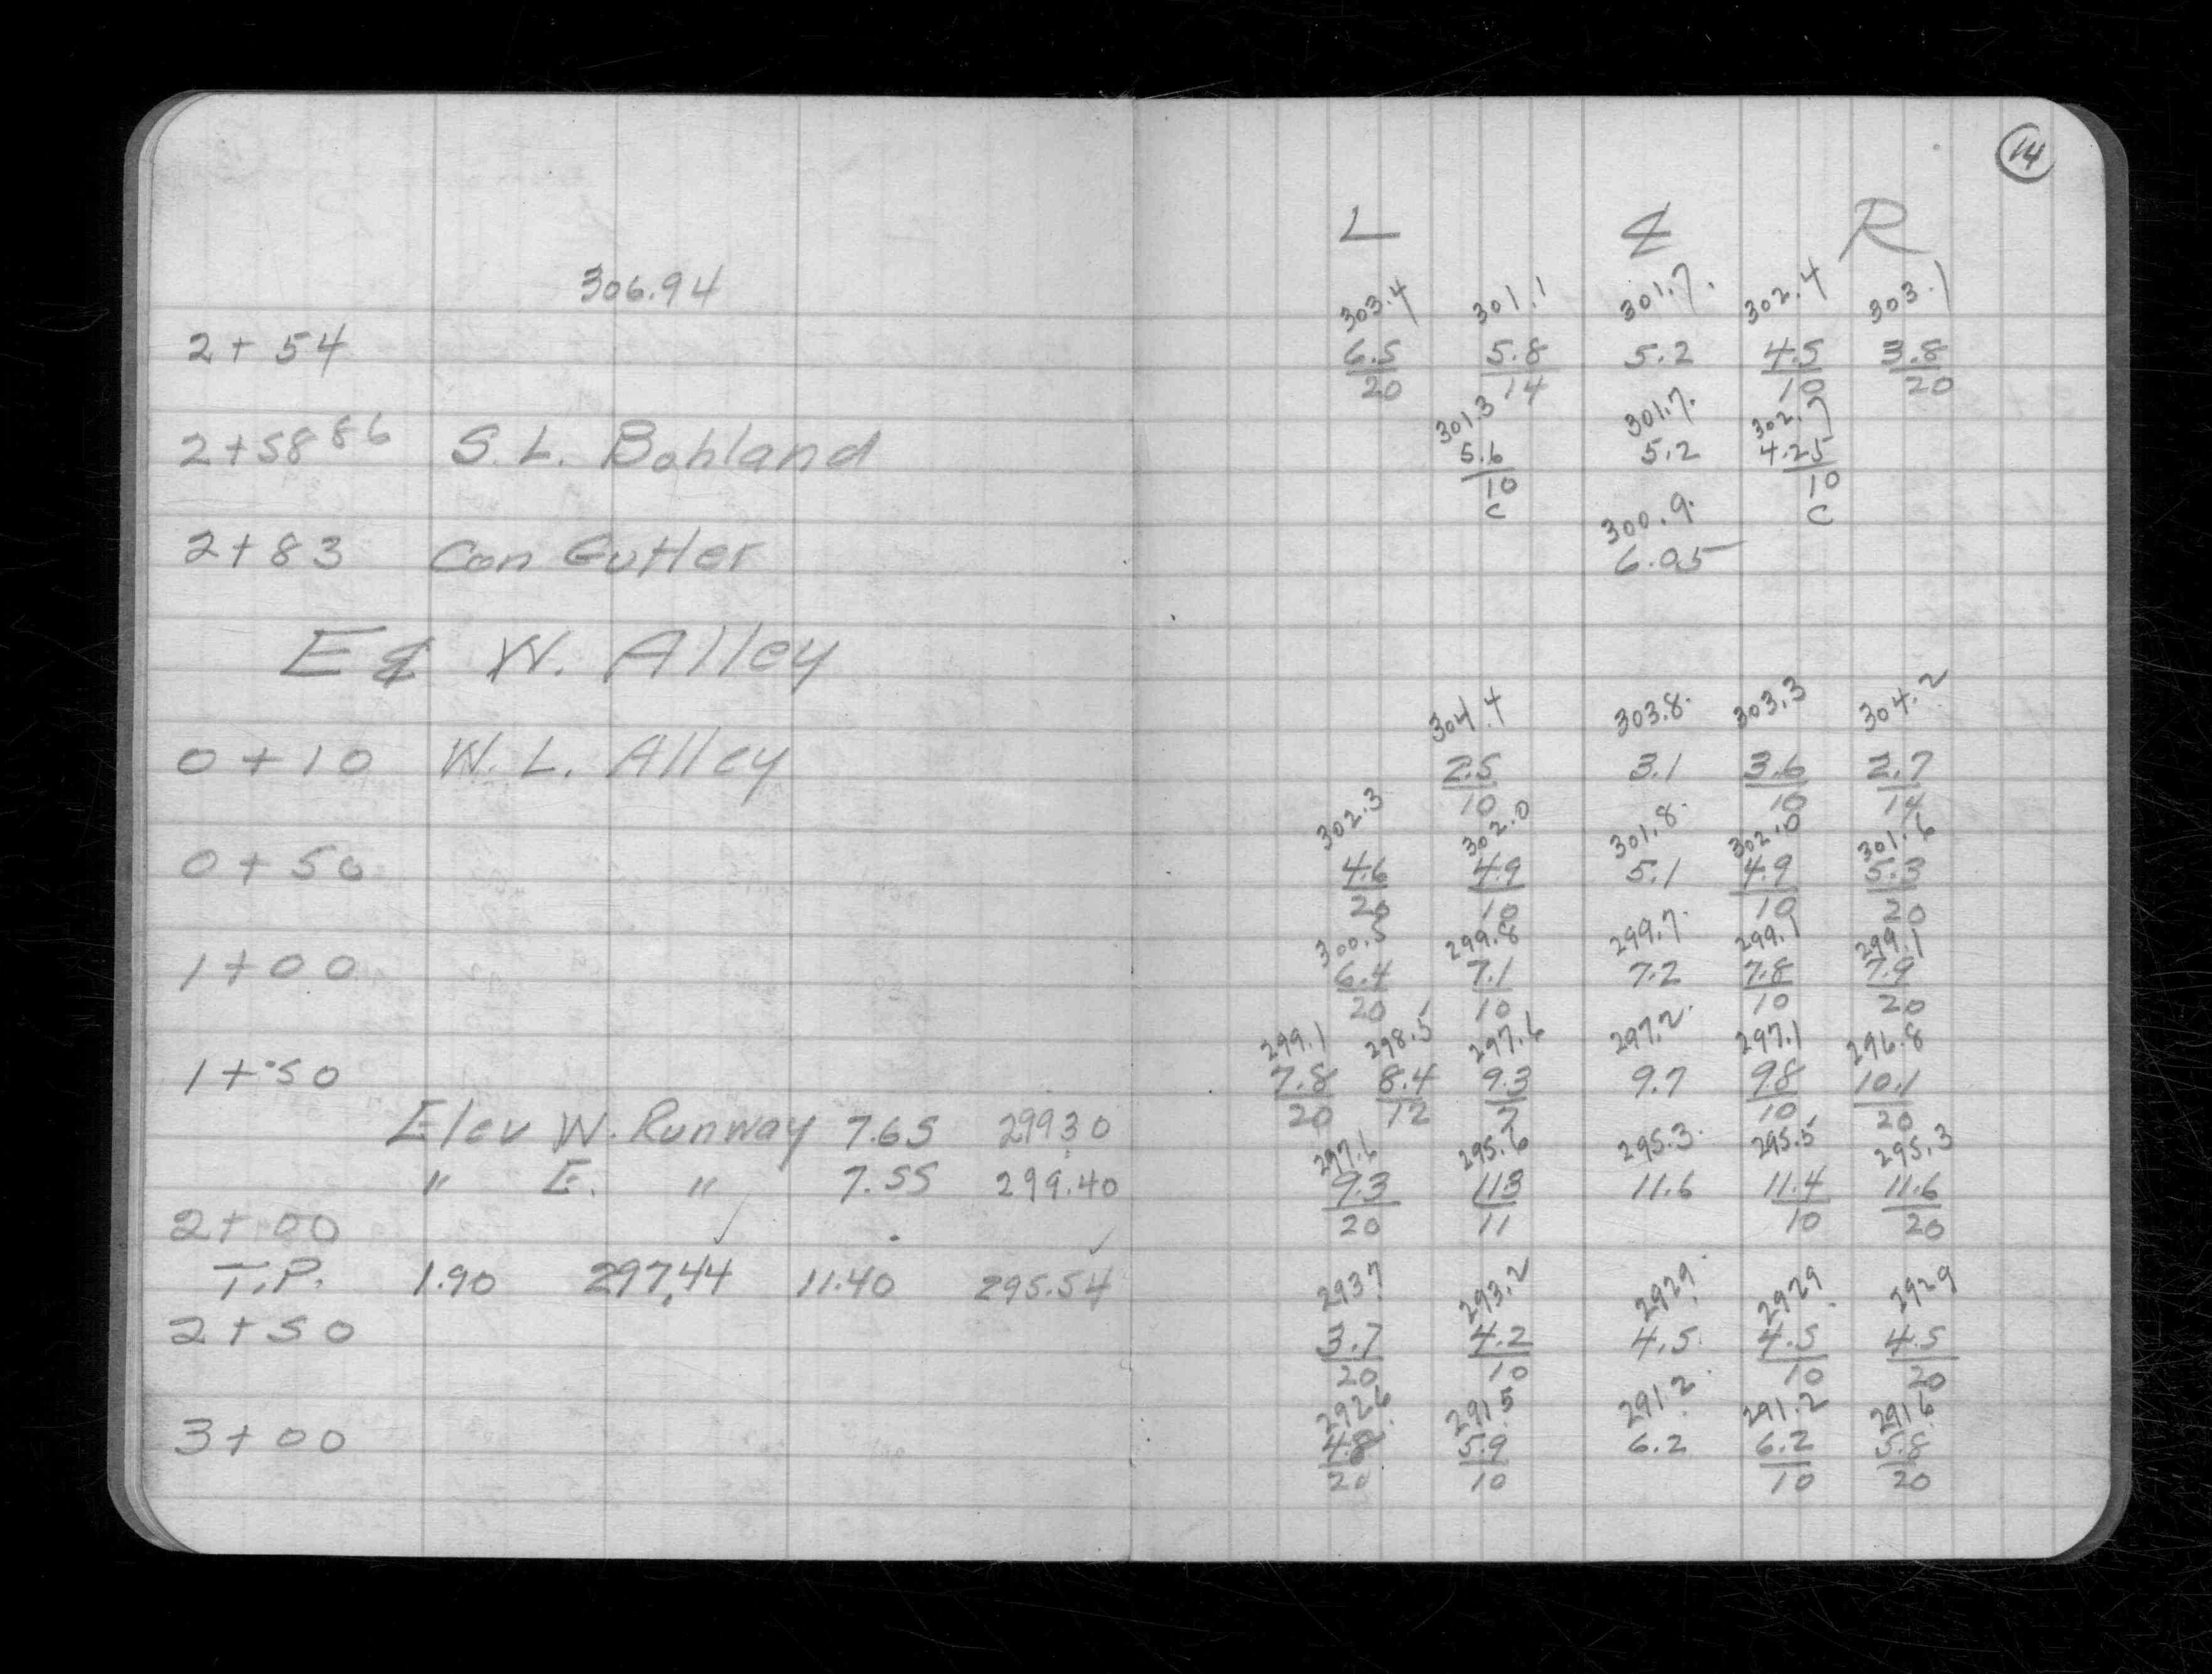 14
L ℄ R
306.94
303.4 301.1 301.7. 302.4 303.1
2+54 6.5 5.8 5.2 4.5 3.8
20 14 10 20
301.3 301.7. 302.7
2+58 86 S.L. Bohland 5.6 5.2 4.25
10 10
C C
300.9.
2+83 Con Gutter 6.05
E ℄ W. Alley
304.4 303.8. 303.3 304.2
0+10 W.L. Alley 2.5 3.1 3.6 2.7
10 10 14
302.3 302.0 301.8. 302.0 301.6
0+50 4.6 4.9 5.1 4.9 5.3
20 10 10 20
300.5 299.8 299.7. 299.1 299.1
1+00 6.4 7.1 7.2 7.8 7.9
20 10 10 20
299.1 298.5 297.6 297.2. 297.1 296.8
1+50 7.8 8.4 9.3 9.7 9.8 10.1
20 12 7 10 20
Elev W. Runway 7.65 299.30
297.6 295.6 295.3. 295.5 295.3
" E. " 7.55 299.40 9.3 11.3 11.6 11.4 11.6
2+00 20 11 10 20
T.P. 1.90 297.44 11.40 295.54
293.7 293.2 292.9 292.9 292.9
2+50 3.7 4.2 4.5. 4.5 4.5
20 10 10 20
292.6 291.5 291.2 291.2 291.6
3+00 4.8 5.9 6.2 6.2 5.8
20 10 10 20